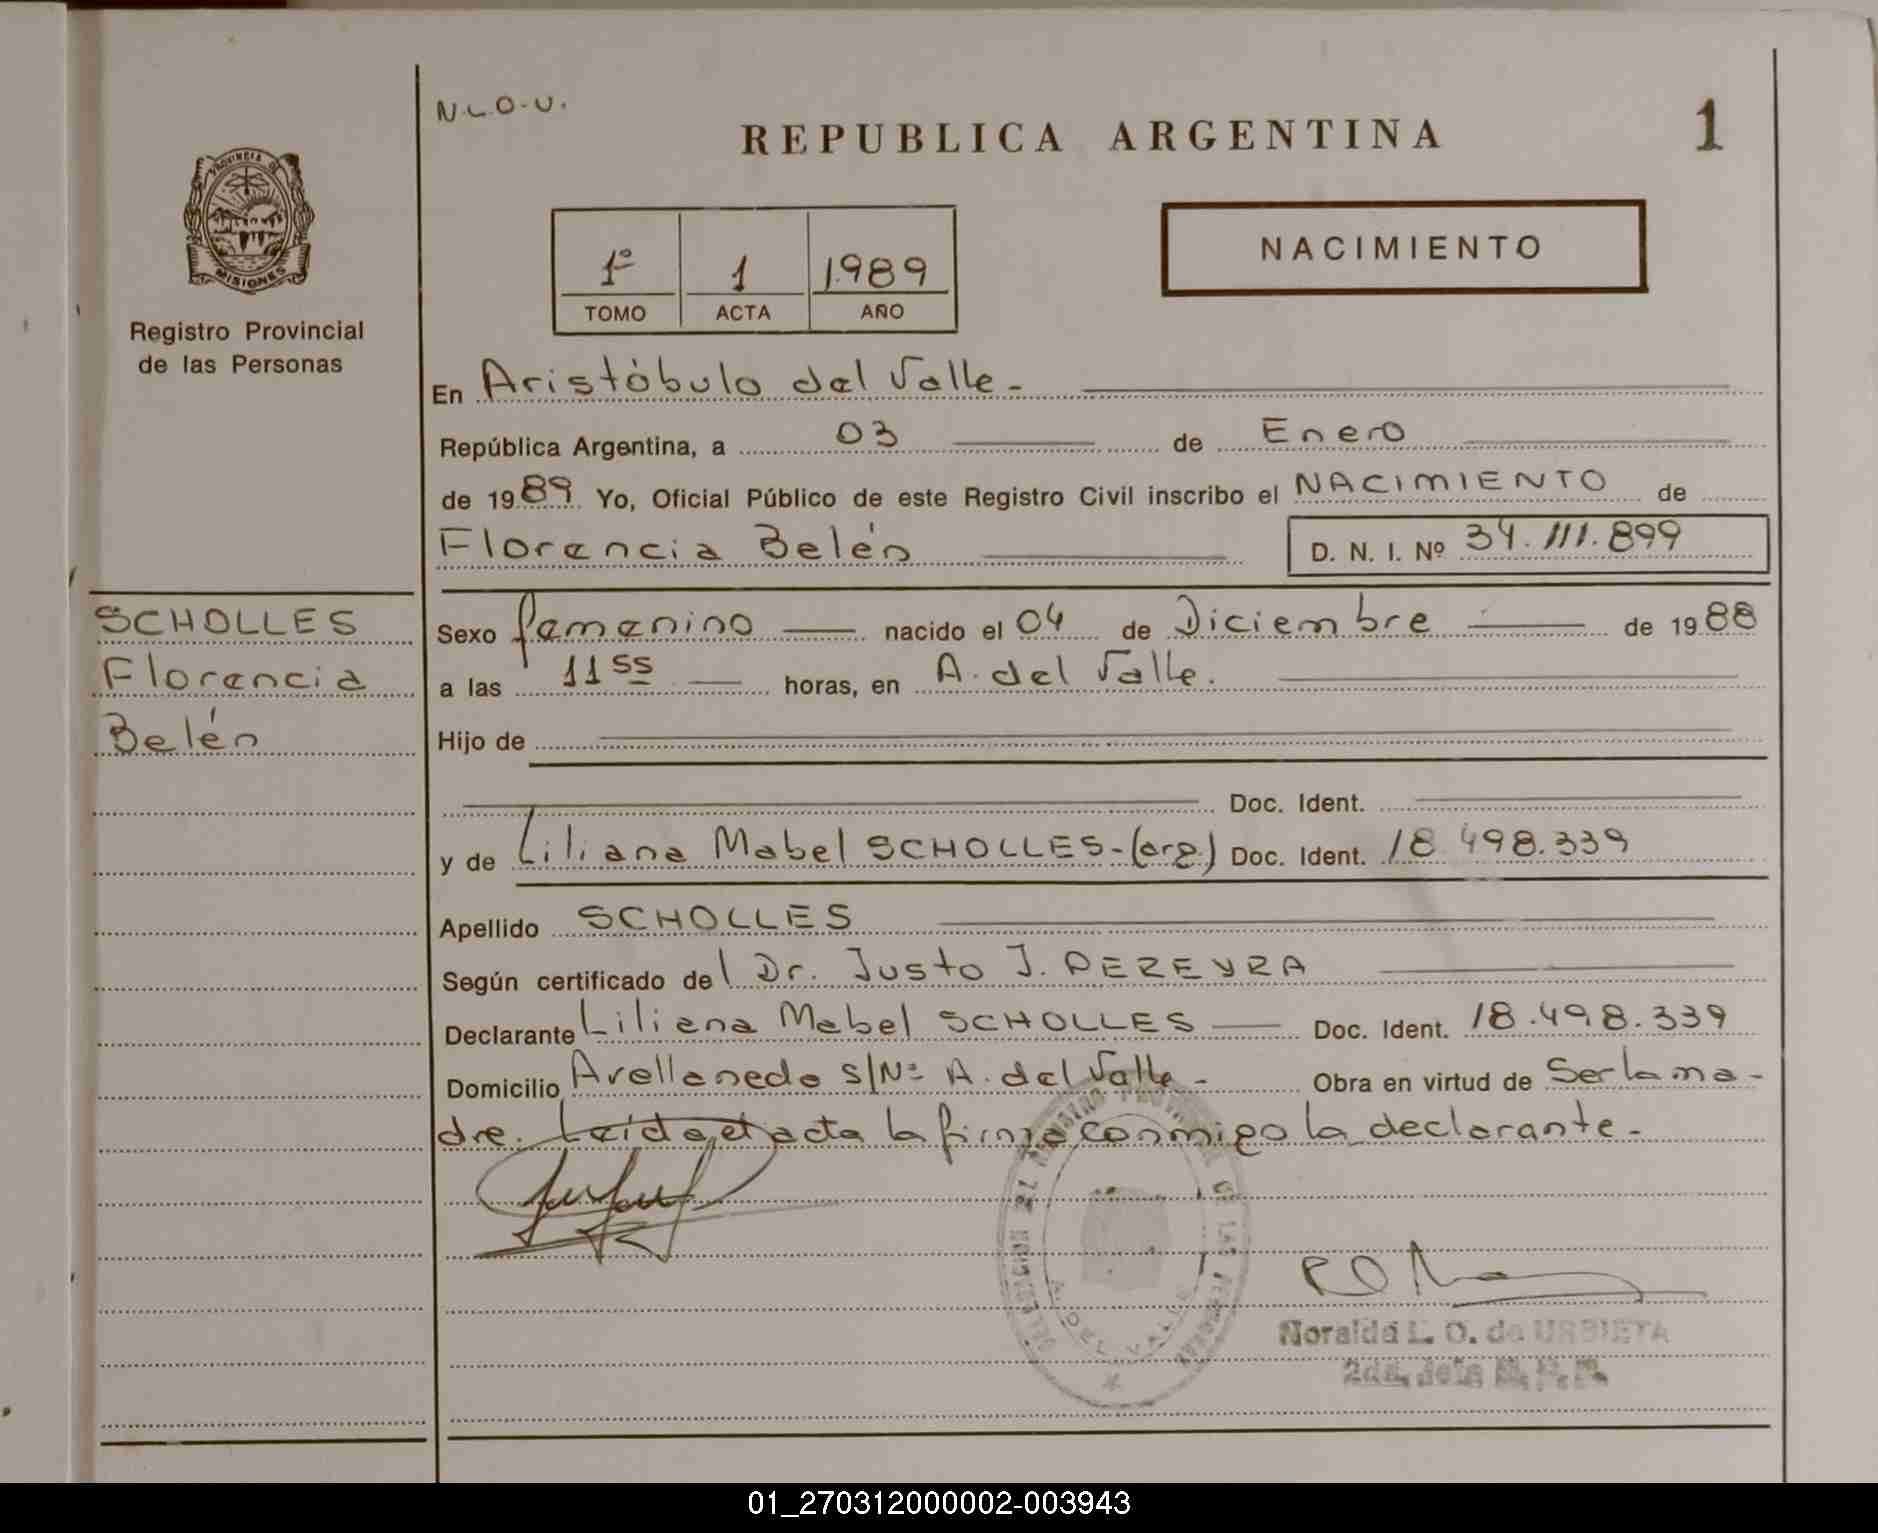 N.L.O.U.
REPUBLICA ARGENTINA
1
PROVINCIA DE
MISIONES
Registro Provincial
de las Personas
1º 1 1.989
TOMO ACTA AÑO
NACIMIENTO
En Aristóbulo del Valle-
República Argentina, a 03 de Enero
de 1989 Yo, Oficial Público de este Registro Civil inscribo el NACIMIENTO de
Florencia Belén D. N. I. Nº 34.111.899
SCHOLLES
Florencia
Belén
Sexo femenino nacido el 04 de Diciembre de 1988
a las 11 55 horas, en A. del Valle.
Hijo de
Doc. Ident.
y de Liliana Mabel SCHOLLES-(arg.) Doc. Ident. 18.498.339
Apellido SCHOLLES
Según certificado del Dr. Justo J. PEREYRA
Declarante Liliana Mabel SCHOLLES Doc. Ident. 18.498.339
Domicilio Avellaneda S/Nº A. del Valle- Obra en virtud de Ser la ma-
dre. Leida el acta la firma conmigo la declarante-
A. DEL VALLE
Noralda L. O. de URBIETA
2da. Jefa R.P.P.
01_270312000002-003943